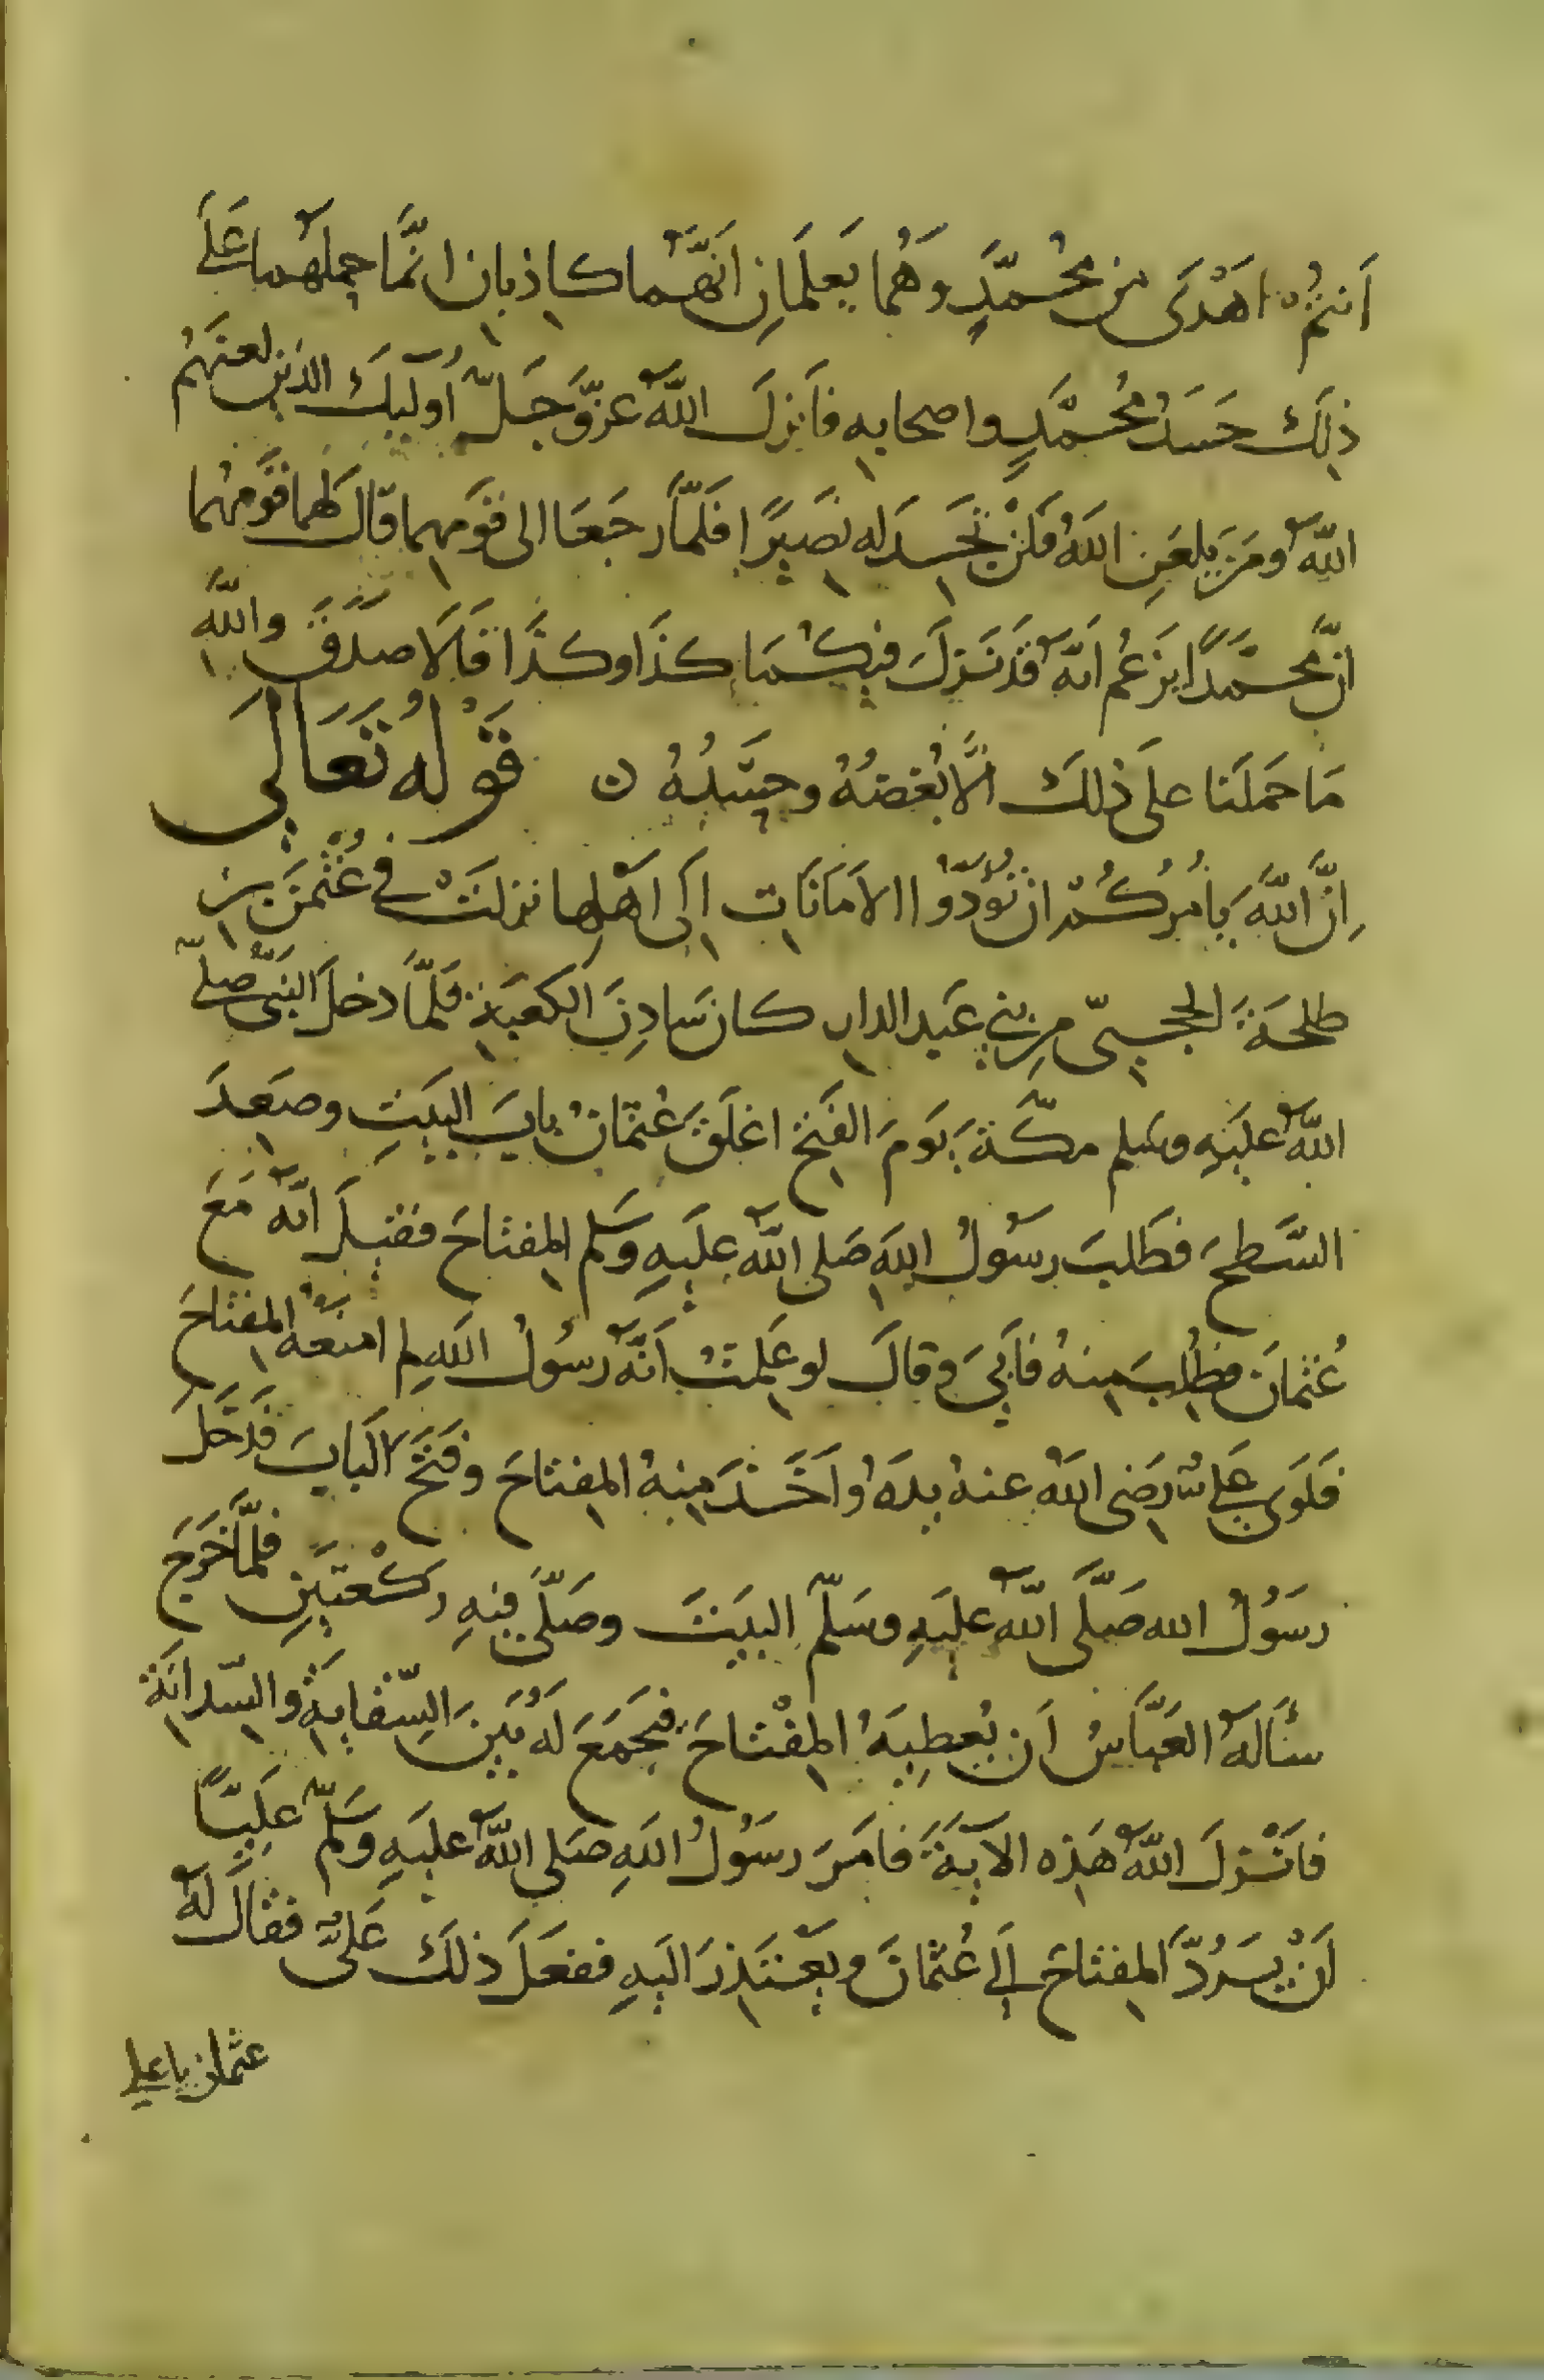 اَنتُم اهْدَى من محُمّدٍ وهُما يَعلَمَانِ اَنَّهُما كاذِبان انَّما حملهُما عَلَى
ذلِكَ حَسَدُ مُحمّدٍ واصحابِه فاَنزلَ اللّه عزّوَجَلّ اُولَيِكَ الذين لعنَهُم
اللّه ومَن يَلعَنِ اللهُ فَلَنْ تَجِدَ له نصَيِرًا فلَمّا رجَعَا الى قَومِهما قالَ لهُما قَومُهُما
انّ محمّدًا يَزعُم انّه قَد نَزلَ فيكُما كذَا وكذَا قالَا صدَقَ واللّه
مَا حَمَلَنا على ذلكَ الّا بُغضُهُ وحسَدُهُ ن قَوْلُه تَعَالَى
اِنَّ اللّهَ يَامُركُم ان تُوَدّوا الاَمَانَاتِ اِلَى اَهْلِها نزلَتْ في عُثمنَ بنِ
طلحَةَ الحجبىّ مِن بنى عَبد الدار كان سَادِنَ الكعبَةِ فلَمّا دخلَ النبىّ صلّى
اللّه علَيهِ وسَلم مكّةَ يَومَ الفَتحِ اغلَقَ عُثمَانُ بابَ البيَتِ وصَعِدَ
السَّطحَ فطَلبَ رسُولُ اللهِ صَلى اللّه علَيهِ وسَلم المِفتاحَ فقيلَ انّه مَعَ
عُثمانَ فطُلِبَ مِنهُ فاَبَى وقالَ لو عَلِمتُ اَنَّه رسُولُ اللهِ لم امنَعْه المِفتاحَ
فلَوى عَلىٌّ رضَى اللّه عنهُ يدَهُ واَخَذَ مِنهُ المِفتاحَ وفتَحَ البَابَ فدَخَلَ
رسَوُلُ الله صَلَّى اللّه علَيهِ وسَلّم البيَتَ وصَلّى فيهِ ركْعتَينِ فلَمّا خرَجَ
سَاَلهُ العَبّاسُ اَن يُعطِيَهُ المِفْتاحَ فيَجمَعَ لَهُ بَينَ السِّقايَةِ والسّدانَة
فاَنْزلَ اللّه هَذِه الآيةَ فامَرَ رسَوُلُ اللهِ صَلى اللّه علَيهِ وسَلّم عَليّاً
اَنْ يَرُدَّ المِفتاحَ اِلى عُثمانَ ويَعتَذِرَ الَيهِ ففعَلَ ذلكَ عَلىّ فقالَ لَه
عثمان يا على